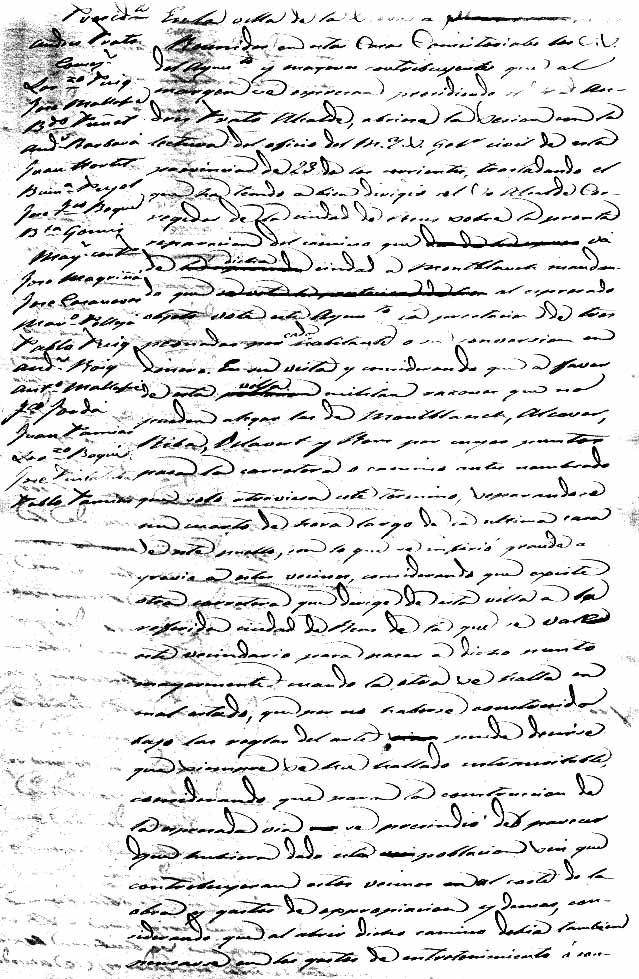 Presid.ª
Andres Prats
Conceg.s
Lor.zo Puig
José Mallafré
B.do Puñet
And.s Barberá
Juan Mortet
Buen.ª Pujol
José F.co Roqué
B.ta Gomis
May.s cont.s
José Magriñá
José Casanovas
Pablo Puig
And.s Roig
Ant.o Mallafré
J.e Forda
Juan
Lor.zo Roqué
José
Pablo
En la villa de la
Reunidos en estas Casas Consistoriales los C.V.
del Ayun.to y mayores contribuyentes que al
margen se espresan presididos An-
dres Prats Alcalde, abriose la sesion con la
lectura del oficio del M.Y.S. Gob.r civil de esta
provincia de 23 de los corrientes, trasladando el
que ha tenido a bien dirigir al Alcalde Cor-
regidor de la ciudad de Reus sobre la pronta
reparacion del camino que va
de dicha ciudad a Montblanch mandan-
do que al espresado
objeto vote este Ayun.to la prestacion de tres
peonadas por cada habitante o su conversion en
dinero. En su vista y considerando que a favor
de esta villa militan razones que no
pueden alegar las de Montblanch, Alcover,
Riba, Vilavert y Reus por cuyos puntos
pasa la carretera o camino antes nombrado
que solo atraviesa este termino, separandose
un cuarto de hora largo de la ultima casa
de este pueblo, con lo que se infirió grande a-
gravio a estos vecinos, considerando que existe
otra carretera que dirige de esta villa a la
referida ciudad de Reus de la que se vale
este vecindario para pasar a dicho punto
mayormente cuando la otra se halla en
mal estado, que por no haberse construido
bajo las reglas del arte puede decirse
que siempre se ha hallado intransitable,
considerando que para la construccion de
la espresada via se prescindió del parecer
que hubiera dado esta poblacion sin que
contribuyeran estos vecinos en al coste de la
obra y gastos de appropiacion y demas, con-
siderando que al abrir dicho camino debia tambien
en los gastos de entretenimiento ó con-